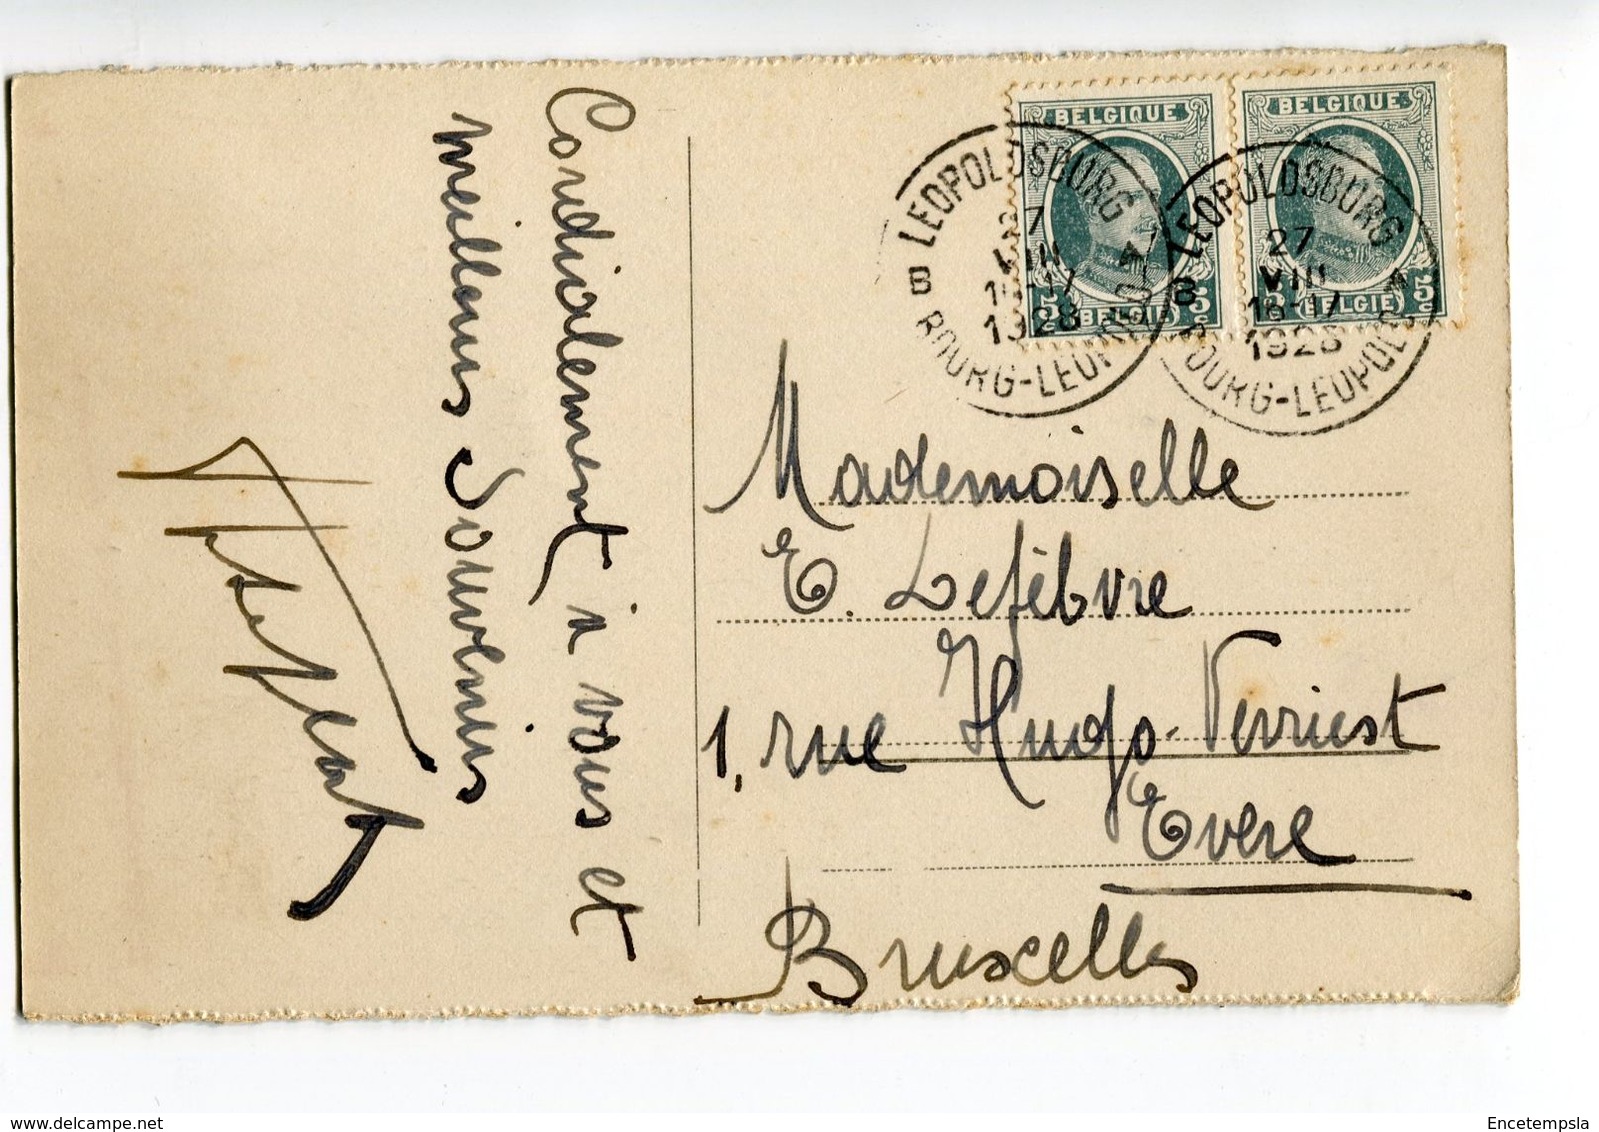 Cordialement à vous et
meilleurs Souvenirs
BELGIQUE
5c 5c
(BELGIË)
BELGIQUE
5c 5c
(BELGIË)
LEOPOLDSBURG
7
VIII
-17
1928
B
BOURG-LEOPOLD
LEOPOLDSBURG
27
VIII
16-17
1928
B
BOURG-LEOPOLD
Mademoiselle
E. Lefèbvre
1, rue Hugo-Verriest
Evere
Bruxelles
Encetempsla